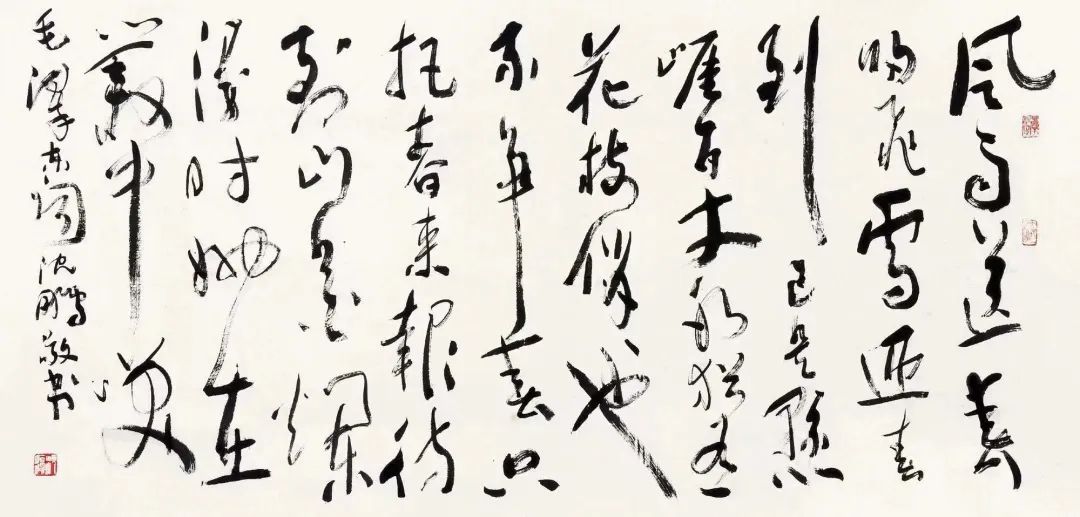 風雨送春
歸飛雪迎春
到已是懸
崖百丈冰猶有
花枝俏〻也
不爭春只
把春來報待
到山花爛
漫時她在
叢中笑
毛澤東詞沈鵬敬书